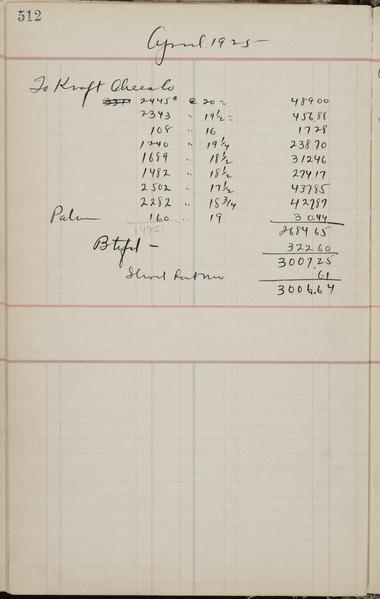 512
April 1925
To Kraft Cheese Co
2445# @ 20 = 48900
2343 " 19 1/2 = 45688
108 " 16 1728
1240 " 19 1/4 23870
1689 " 18 1/2 31246
1482 " 18 1/2 27417
2502 " 17 1/2 43785
2282 " 18 3/4 42787
160 " 19 3044
14251 268465
32260
3007.25
61
3006.64